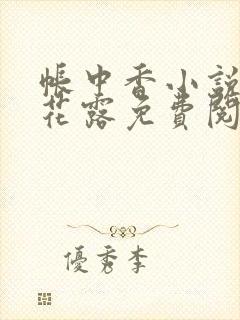 帳中香小說
花露免費閱
優秀李